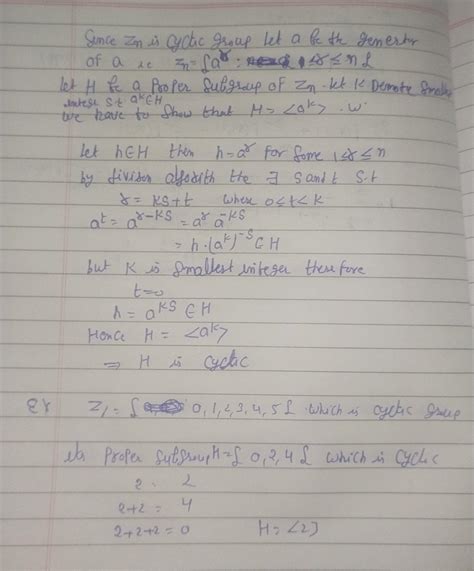 Since Zn is cyclic group let a be the generator
of a ie Zn = {a^r : 1≤r≤n}
let H be a Proper Subgroup of Zn. let K Denote Smallest
integer S.t a^k∈H
we have to show that H = <a^k>.
let h∈H then h=a^r for some 1≤r≤n
by division algorith the ∃ s and t S.t
r = ks+t where 0≤t<k
a^t = a^r-ks = a^r a^-ks
= h.(a^k)^-s ∈H
but K is smallest integer therefore
t=0
h = a^ks ∈H
Hence H = <a^k>
⇒ H is cyclic
Ex Z = { 0,1,2,3,4,5 } which is cyclic group
Proper subgroup H={ 0,2,4 } which is cyclic
2 = 2
2+2 = 4
2+2+2 = 0 H=<2>